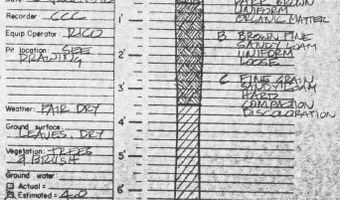 Recorder CCC
Equip Operator: RICO
Pit location SEE
DRAWING
Weather: FAIR DRY
Ground surface:
LEAVES, DRY
Vegetation: TREES
& BRUSH
Ground water:
Actual =
Estimated = 4.0
1'
2'
3'
4'
5'
6'
DARK BROWN
UNIFORM
ORGANIC MATTER
B BROWN FINE
SANDY LOAM
UNIFORM
LOOSE
C FINE GRAIN
SANDY LOAM
HARD
COMPACTION
DISCOLORATION